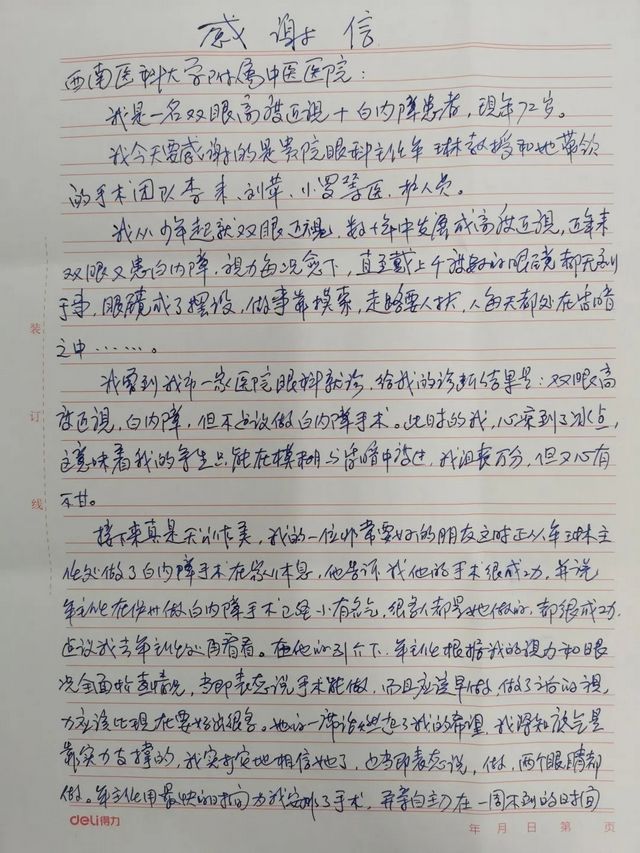 感谢信
西南医科大学附属中医医院：
我是一名双眼高度近视十白内障患者，现年72岁。
我今天要感谢的是贵院眼科主任年琳教授和她带领
的手术团队李来、刘苹、小罗等医、护人员。
我从少年起就双眼近视，数十年中发展成高度近视，近年来
双眼又患白内障，视力每况愈下，直至戴上千度的眼镜都无济
于事，眼镜成了摆设，做事靠摸索，走路要人扶，人每天都处在昏暗
之中……。
我曾到我市一家医院眼科就诊，给我的诊断结果是：双眼高
度近视，白内障，但不建议做白内障手术。此时的我，心突到了冰点，
这意味着我的余生只能在模糊与昏暗中度过，我沮丧万分，但又心有
不甘。
接下来真是天作美，我的一位非常要好的朋友这时正从年琳主
任处做了白内障手术在家休息，他告诉我他的手术很成功，并说
年主任在做白内障手术已经小有名气，很多人都是她做的，都很成功，
建议我去年主任处再看看。在他的引介下，年主任根据我的视力和眼
况全面检查情况，当即表态说手术能做，而且应该早做，做了之后的视
力应该比现在要好出很多。她的一席话燃起了我的希望，我深知底气是
靠实力支撑的，我实打实地相信她了，也当即表态说，做，两个眼睛都
做。年主任用最快的时间为我安排了手术，并亲自主刀在一周不到的时间
装
订
线
deli得力
年 月 日 第 页